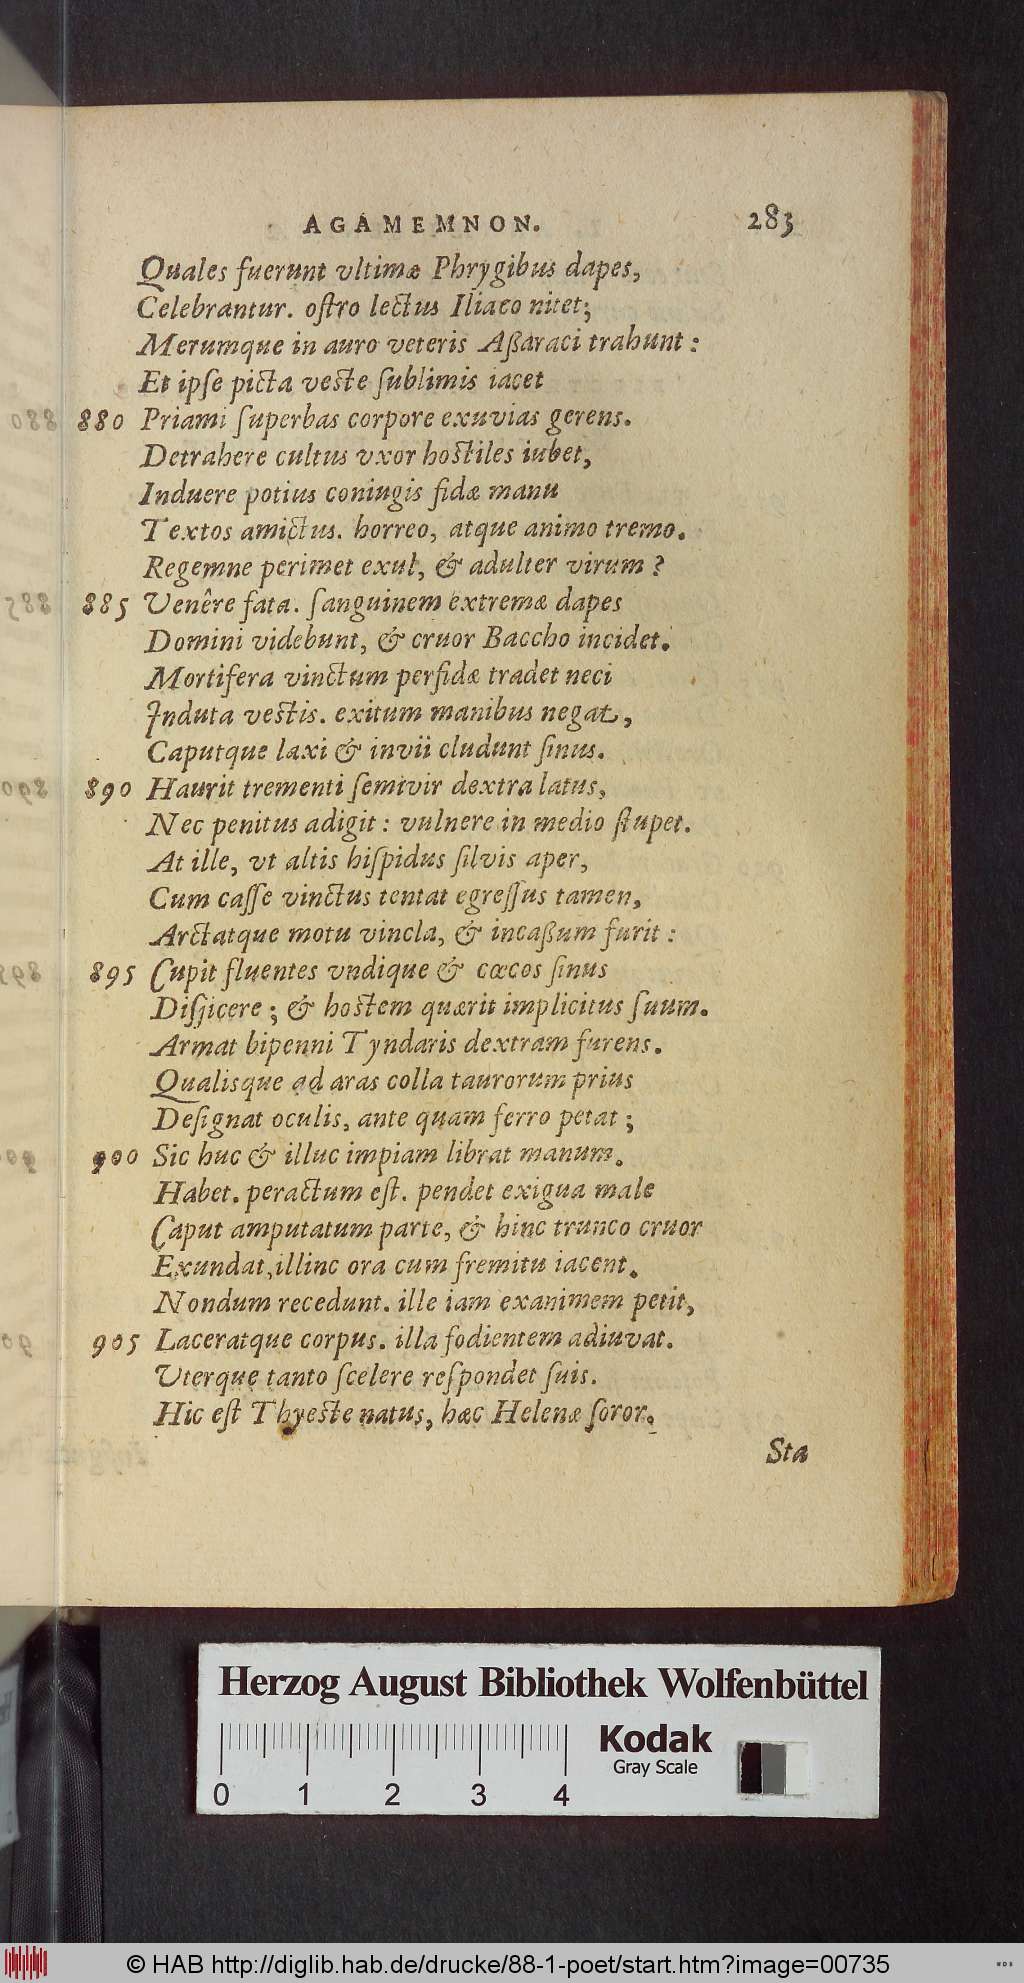 AGAMEMNON. 283
Quales fuerunt vltimæ Phrygibus dapes,
Celebrantur. oſtro lectus Iliaco nitet;
Merumque in auro veteris Aßaraci trahunt:
Et ipſe picta veste ſublimis iacet
880 Priami ſuperbas corpore exuvias gerens.
Detrahere cultus vxor hostiles iubet,
Induere potius coniugis fidæ manu
Textos amictus. horreo, atque animo tremo.
Regemne perimet exul, & adulter virum?
885 Venêre fata. ſanguinem extremæ dapes
Domini videbunt, & cruor Baccho incidet.
Mortifera vinctum perfidæ tradet neci
Induta vestis. exitum manibus negat,
Caputque laxi & invii cludunt ſinus.
890 Haurit trementi ſemivir dextra latus,
Nec penitus adigit: vulnere in medio ſtupet.
At ille, vt altis hiſpidus ſilvis aper,
Cum caſſe vinctus tentat egreſſus tamen,
Arctatque motu vincla, & incaßum furit:
895 Cupit fluentes vndique & cœcos ſinus
Diſjicere; & hostem quærit implicitus ſuum.
Armat bipenni Tyndaris dextram furens.
Qualisque ad aras colla taurorum prius
Deſignat oculis, ante quam ferro petat;
900 Sic huc & illuc impiam librat manum.
Habet. peractum eſt. pendet exigua male
Caput amputatum parte, & hinc trunco cruor
Exundat, illinc ora cum fremitu iacent.
Nondum recedunt. ille iam exanimem petit,
905 Laceratque corpus. illa fodientem adiuvat.
Vterque tanto ſcelere reſpondet ſuis.
Hic eſt Thyeste natus, hæc Helenæ ſoror.
Sta
Herzog August Bibliothek Wolfenbüttel
Kodak
Gray Scale
0 1 2 3 4
© HAB http://diglib.hab.de/drucke/88-1-poet/start.htm?image=00735